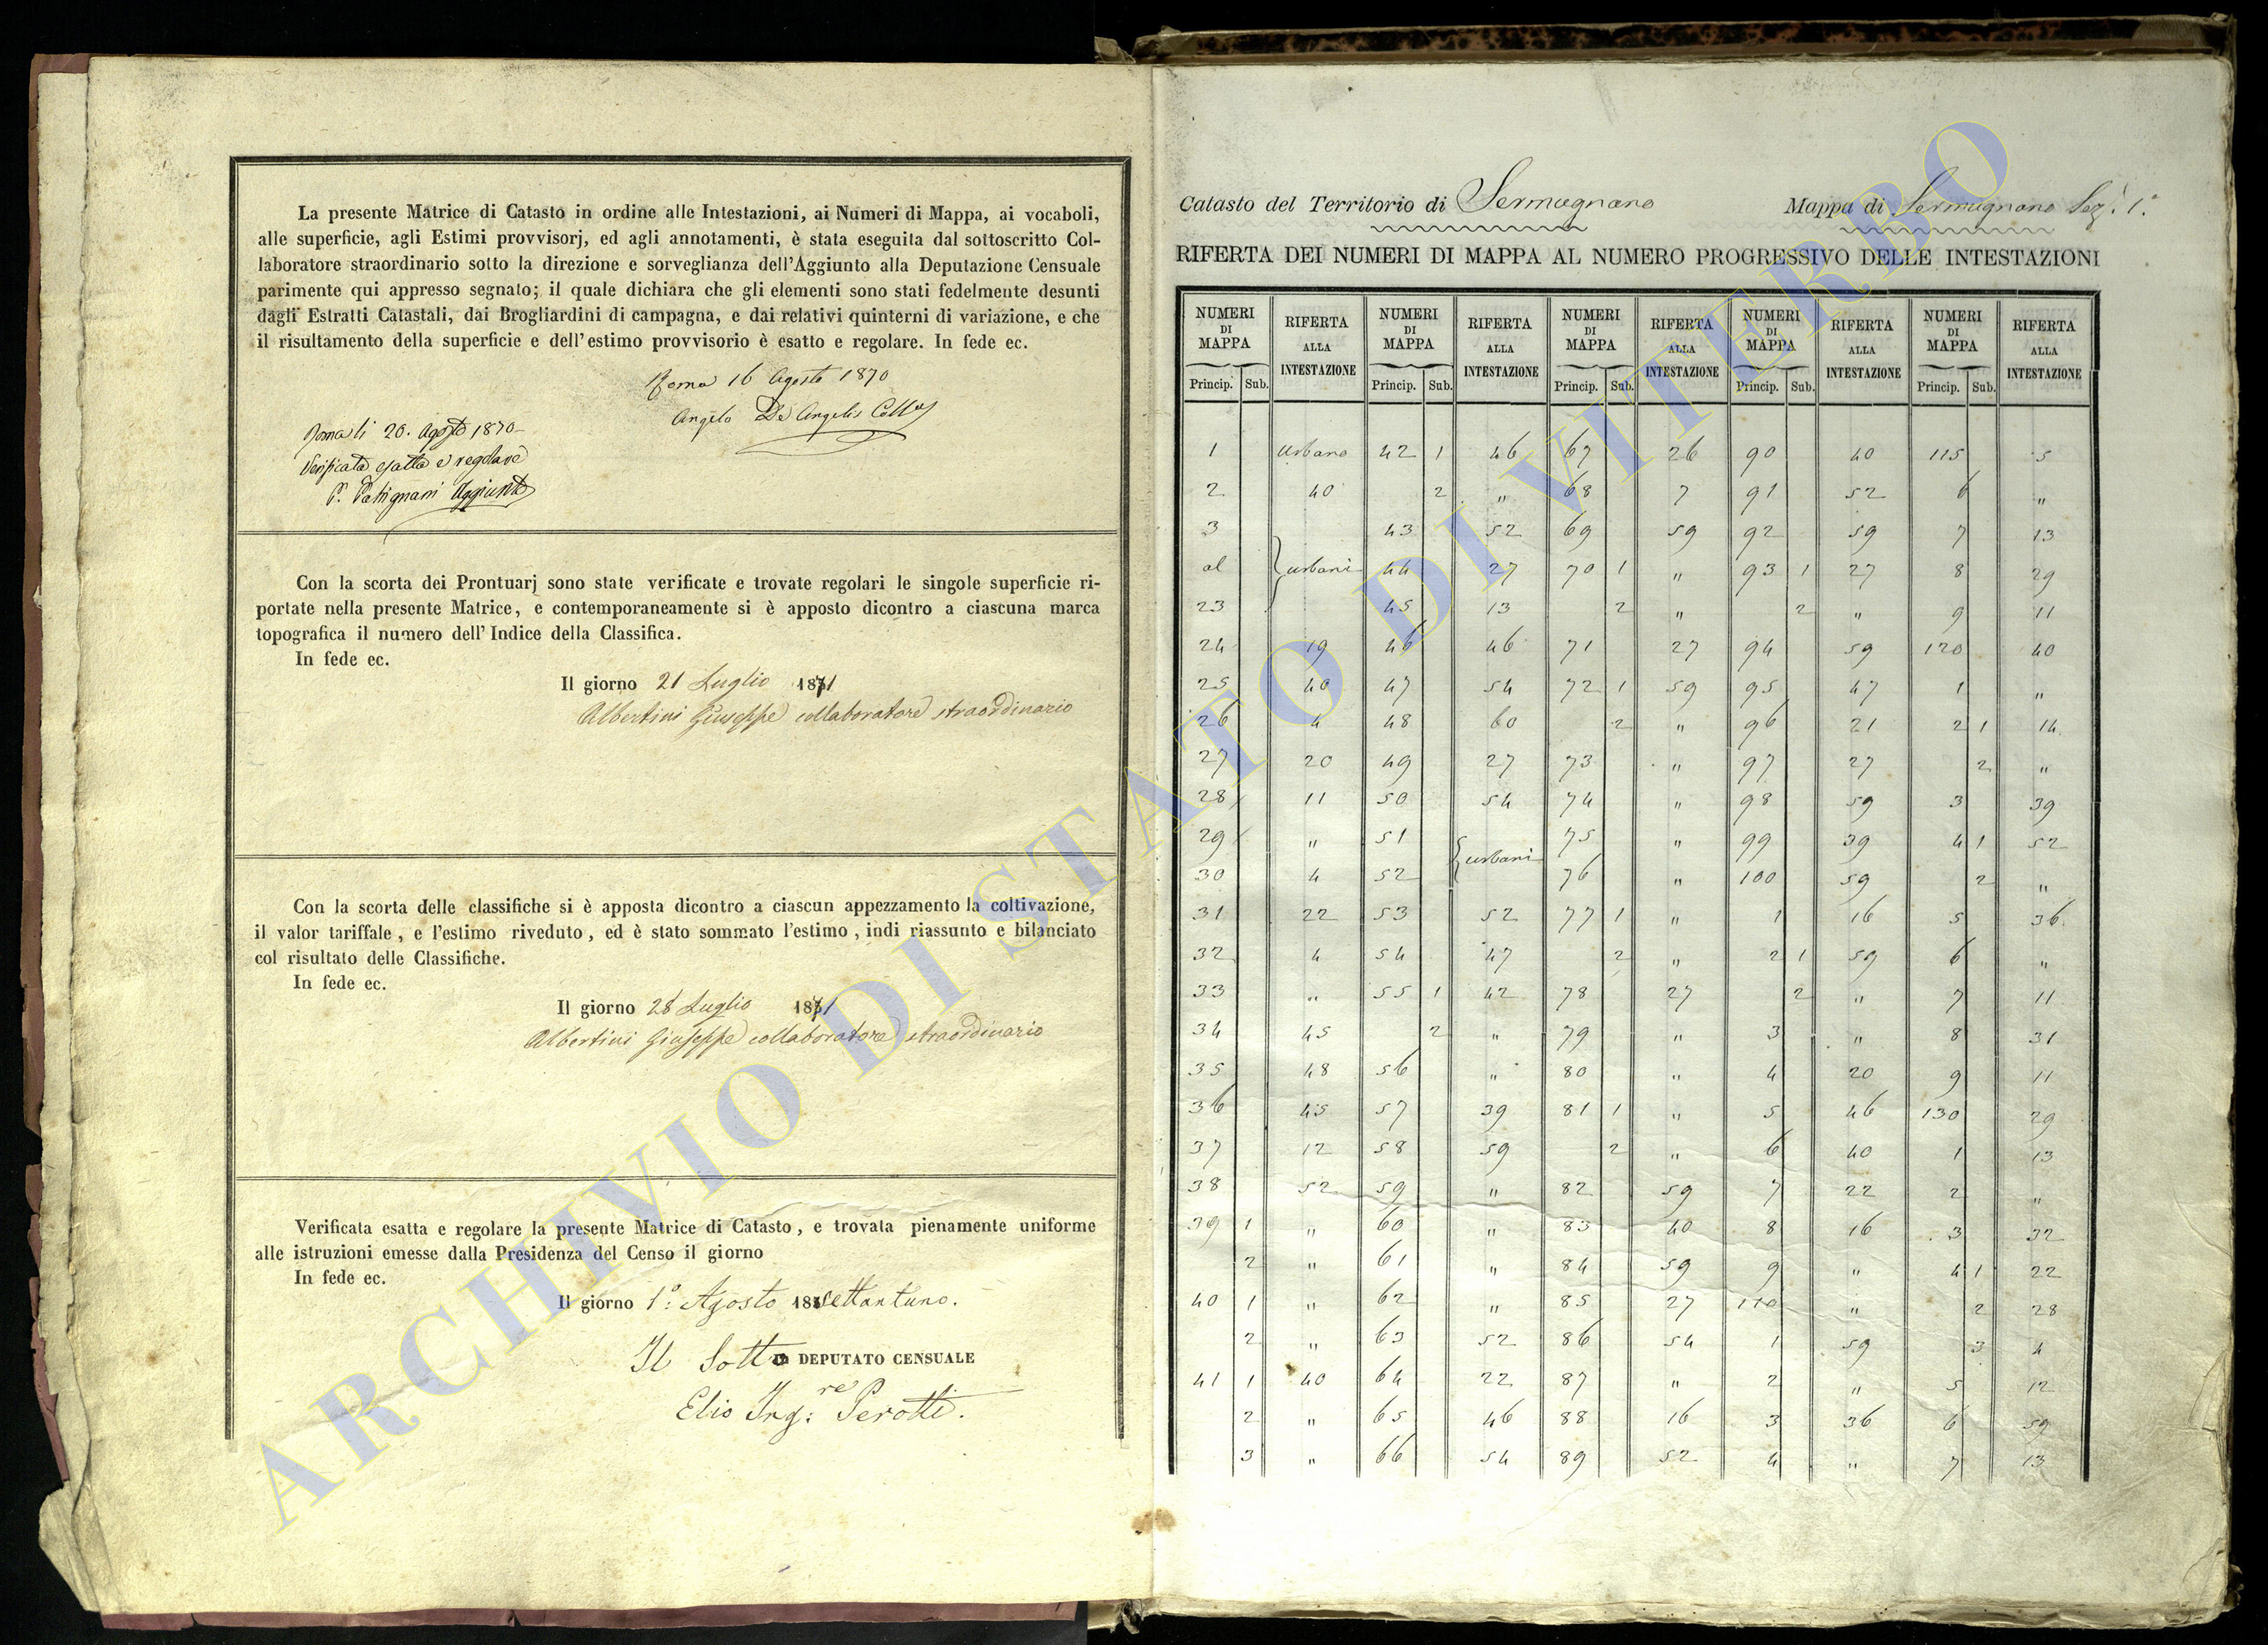 La presente Matrice di Catasto in ordine alle Intestazioni, ai Numeri di Mappa, ai vocaboli,
alle superficie, agli Estimi provvisorj, ed agli annotamenti, è stata eseguita dal sottoscritto Col-
laboratore straordinario sotto la direzione e sorveglianza dell'Aggiunto alla Deputazione Censuale
parimente qui appresso segnato; il quale dichiara che gli elementi sono stati fedelmente desunti
dagli Estratti Catastali, dai Brogliardini di campagna, e dai relativi quinterni di variazione, e che
il risultamento della superficie e dell'estimo provvisorio è esatto e regolare. In fede ec.
Roma 16 Agosto 1870
Angelo De Angelis
Roma li 20. Agosto 1870
Verificata esatta e regolare
Aggiunto
Con la scorta dei Prontuarj sono state verificate e trovate regolari le singole superficie ri-
portate nella presente Matrice, e contemporaneamente si è apposto dicontro a ciascuna marca
topografica il numero dell'Indice della Classifica.
In fede ec.
Il giorno 21 Luglio 1871
Albertini Giuseppe collaboratore straordinario
Con la scorta delle classifiche si è apposta dicontro a ciascun appezzamento la coltivazione,
il valor tariffale, e l'estimo riveduto, ed è stato sommato l'estimo, indi riassunto e bilanciato
col risultato delle Classifiche.
In fede ec.
Il giorno 28 Luglio 1871
Albertini Giuseppe collaboratore straordinario
Verificata esatta e regolare la presente Matrice di Catasto, e trovata pienamente uniforme
alle istruzioni emesse dalla Presidenza del Censo il giorno
In fede ec.
Il giorno 1°: Agosto 18settantuno.
Il Sotto DEPUTATO CENSUALE
Elio Ing:re Perotti.
Catasto del Territorio di Sermugnano Mappa di Sermugnano Sez. 1.a
RIFERTA DEI NUMERI DI MAPPA AL NUMERO PROGRESSIVO DELLE INTESTAZIONI
NUMERI DI MAPPA RIFERTA ALLA INTESTAZIONE NUMERI DI MAPPA RIFERTA ALLA INTESTAZIONE NUMERI DI MAPPA RIFERTA ALLA INTESTAZIONE NUMERI DI MAPPA RIFERTA ALLA INTESTAZIONE NUMERI DI MAPPA RIFERTA ALLA INTESTAZIONE
Princip. Sub. Princip. Sub. Princip. Sub. Princip. Sub. Princip. Sub.
1 Urbano 42 1 46 67 26 90 40 115 5
2 40 2 " 68 7 91 52 6 "
3 43 52 69 59 92 59 7 13
al urbani 44 27 70 1 " 93 1 27 8 29
23 45 13 2 " 2 " 9 11
24 19 46 46 71 27 94 59 120 40
25 40 47 54 72 1 59 95 47 1 "
26 4 48 60 2 " 96 21 2 1 14
27 20 49 27 73 " 97 27 2 "
28 11 50 54 74 " 98 59 3 39
29 " 51 urbani 75 " 99 39 4 1 52
30 4 52 76 " 100 59 2 "
31 22 53 52 77 1 " 1 16 5 36
32 4 54 47 2 " 2 1 59 6 "
33 " 55 1 42 78 27 2 " 7 11
34 45 2 " 79 " 3 " 8 31
35 48 56 " 80 " 4 20 9 11
36 45 57 39 81 1 " 5 46 130 29
37 12 58 59 2 " 6 40 1 13
38 52 59 " 82 59 7 22 2 "
39 1 " 60 " 83 40 8 16 3 32
2 " 61 " 84 59 9 " 4 1 22
40 1 " 62 " 85 27 110 " 2 28
2 " 63 52 86 54 1 59 3 4
41 1 40 64 22 87 " 2 " 5 12
2 " 65 46 88 16 3 36 6 59
3 " 66 54 89 52 4 " 7 13
ARCHIVIO DI STATO DI VITERBO